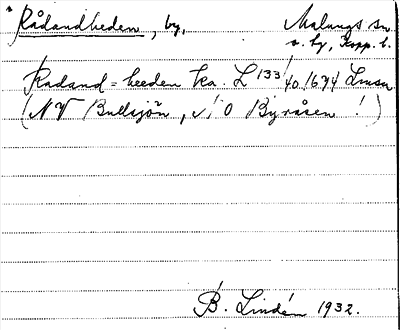 * Rådandheden, by, Malungs sn
o. hg, Kopp. l.
Radand=heeden ka. L 133/40 1674 Lmsa
(NV Bullsjön, v! O Byråsen!)
B. Lindén 1932.